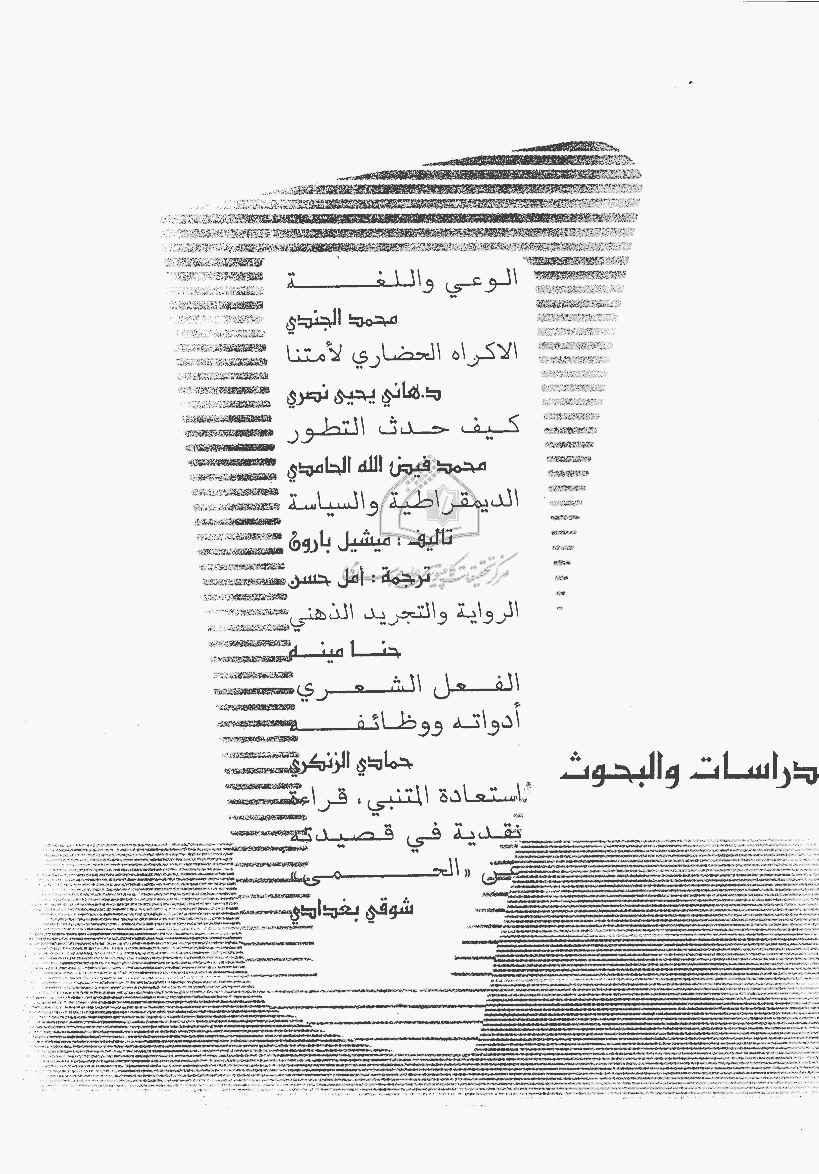 الوعي واللغة
محمد الجندي
الاكراه الحضاري لأمتنا
د.هاني يحيى نصري
كيف حدث التطور
محمد فيض الله الحامدي
الديمقراطية والسياسة
تأليف : ميشيل بارون
ترجمة : أمل حسن
الرواية والتجريد الذهني
حنا مينه
الفعل الشعري
أدواته ووظائفه
حمادي الزنكري
دراسات والبحوث
استعادة المتنبي، قراءة
نقدية في قصيدته
عن «الحمى»
شوقي بغدادي